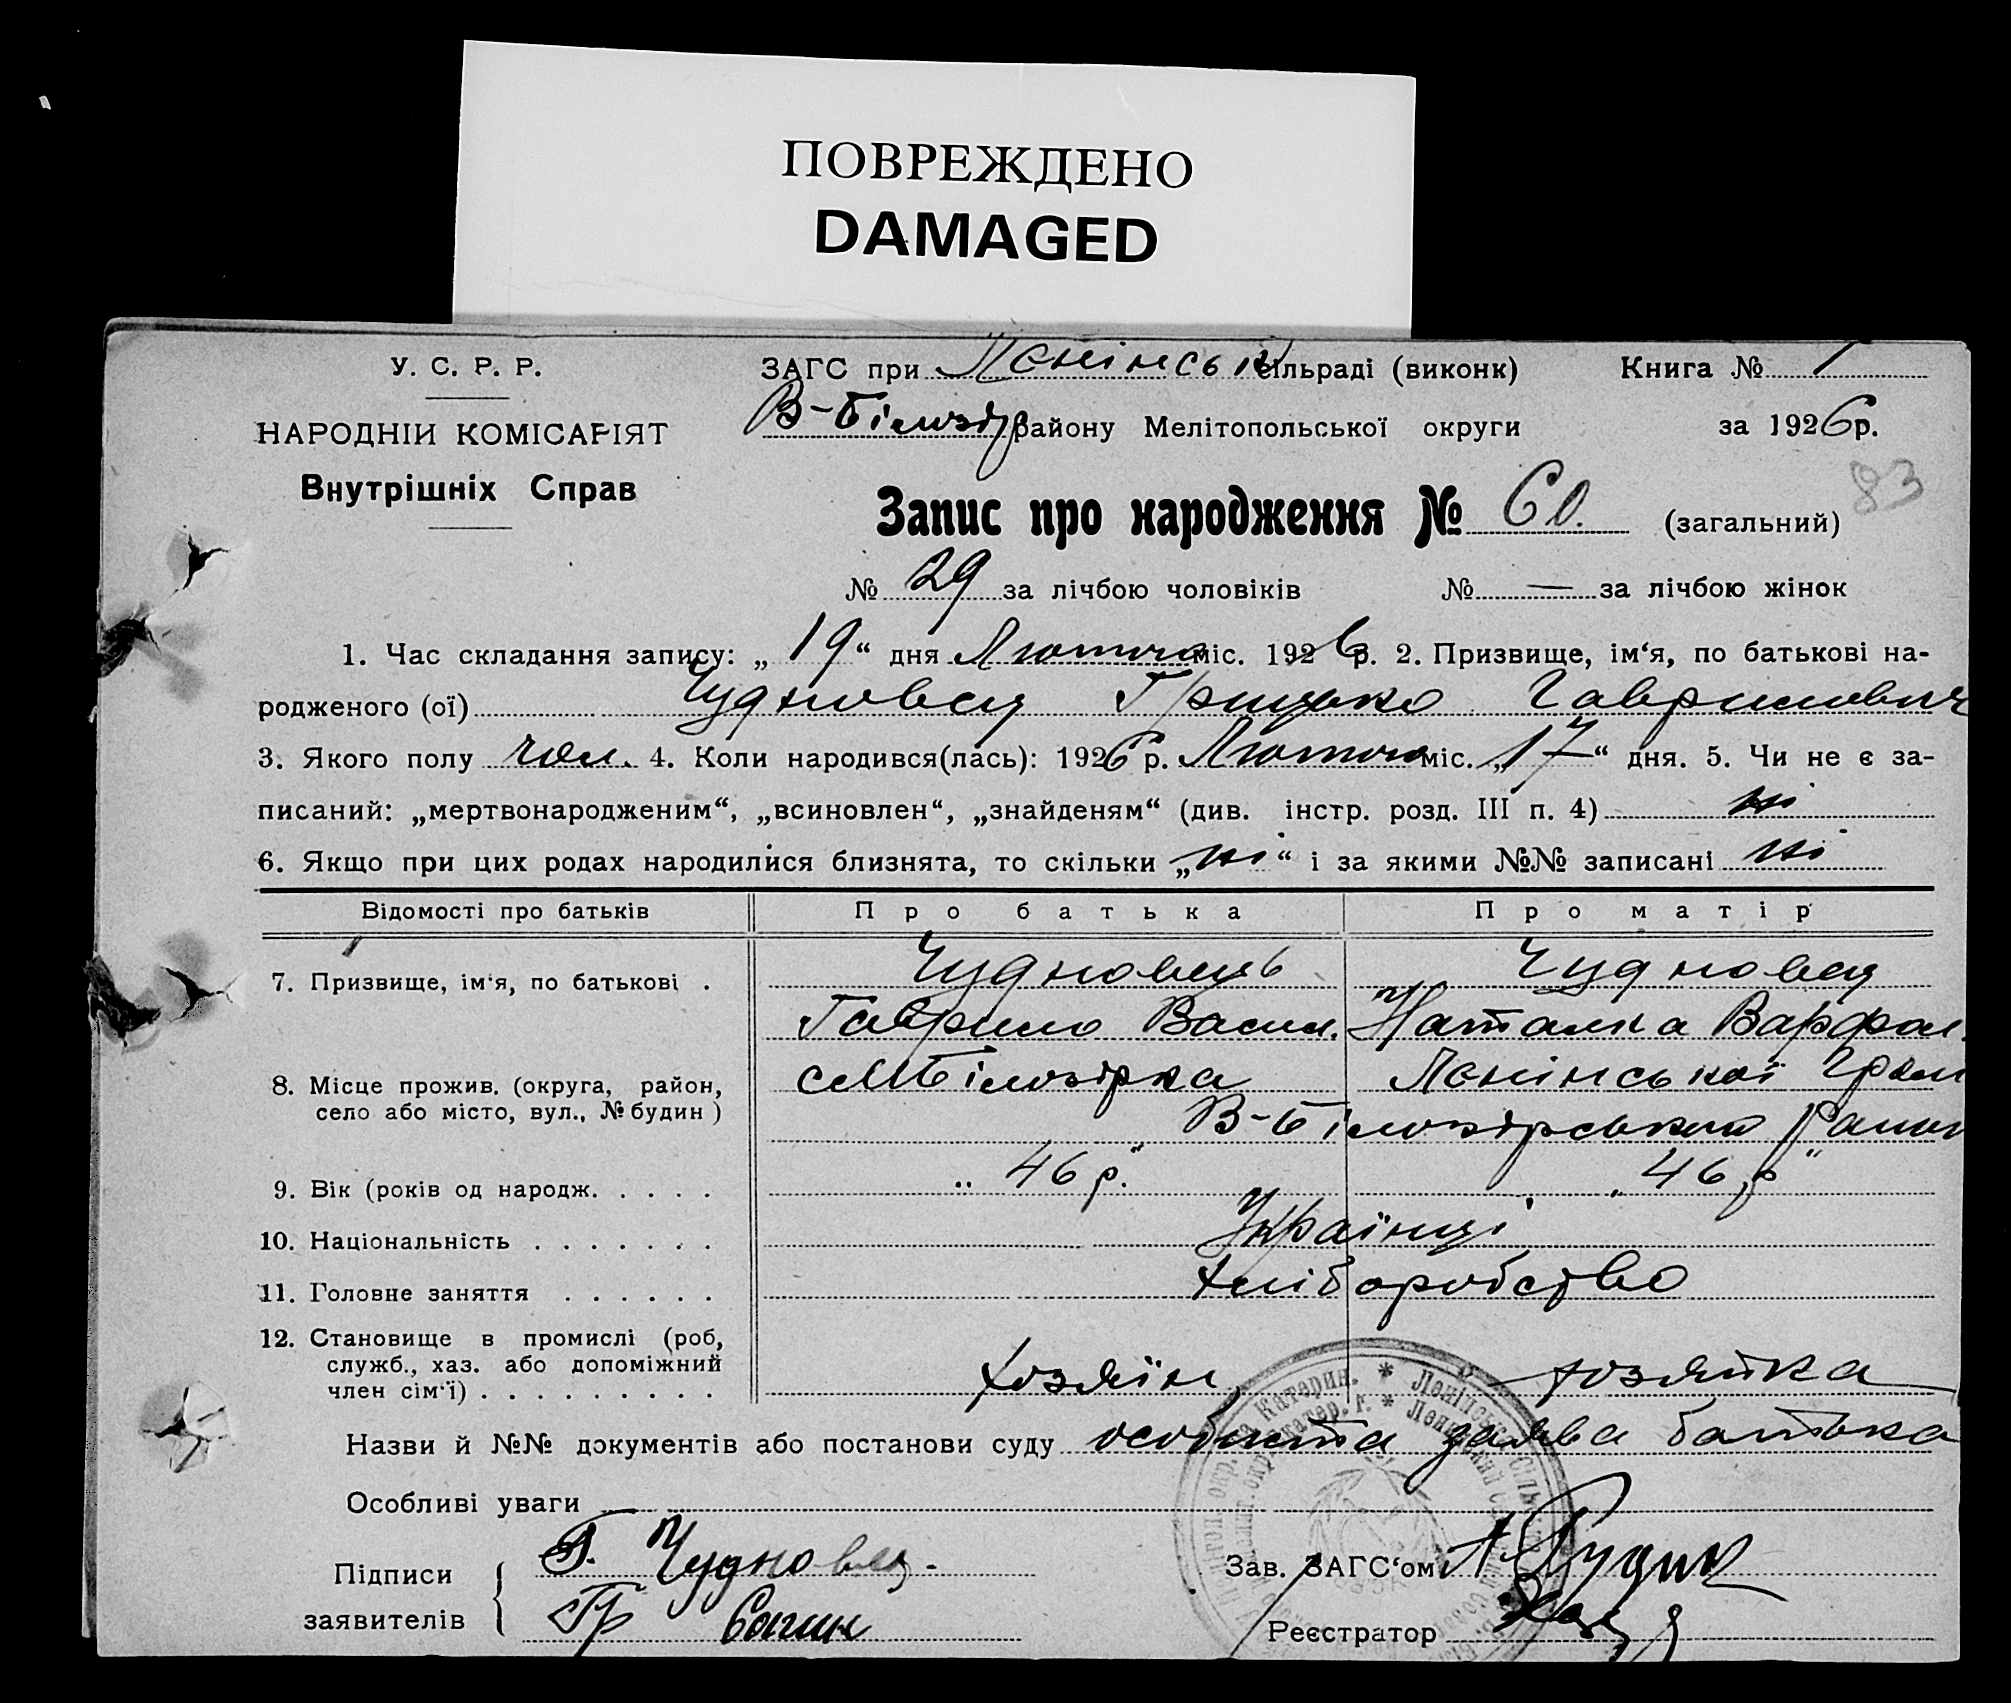 ПОВРЕЖДЕНО
DAMAGED
У. С. Р. Р.
НАРОДНІЙ КОМІСАРІЯТ
Внутрішніх Справ
ЗАГС при Ленінськ сільраді (виконк) Книга № 1
В-Білозір району Мелітопольської округи за 1926р.
83
Запис про народження № 60. (загальний)
№ 29 за лічбою чоловіків № — за лічбою жінок
1. Час складання запису: „19“ дня Лютого міс. 1926 р. 2. Призвище, ім‘я, по батькові на-
родженого (ої) Чудновец Грицько Гаврилович
3. Якого полу чол. 4. Коли народився(лась): 1926 р. Лютого міс. „17“ дня. 5. Чи не є за-
писаний: „мертвонародженим“, „всиновлен“, „знайденям“ (див. інстр. розд. III п. 4) ні
6. Якщо при цих родах народилися близнята, то скільки „ні“ і за якими №№ записані ні
Відомості про батьків Про батька Про матір
7. Призвище, ім‘я, по батькові . Чудновець Чудновец
Гаврило Васил. Наталка Варфол.
8. Місце прожив. (округа, район, с М Білозірка Ленінської Гром
село або місто, вул., № будин ) В-Білозірського Району
9. Вік (років од народж. . . . . „46 р.“ „46 р“
10. Національність . . . . . . . Українці
11. Головне заняття . . . . . . Хліборобство
12. Становище в промислі (роб,
служб., хаз. або допоміжний
член сім‘ї) . . . . . . . . . . хозяїн хозяйка
Назви й №№ документів або постанови суду особиста заява батька
Особливі уваги —
Підписи Г. Чудновец. Зав. ЗАГС‘ом А Рудик
заявителів Гр Реєстратор